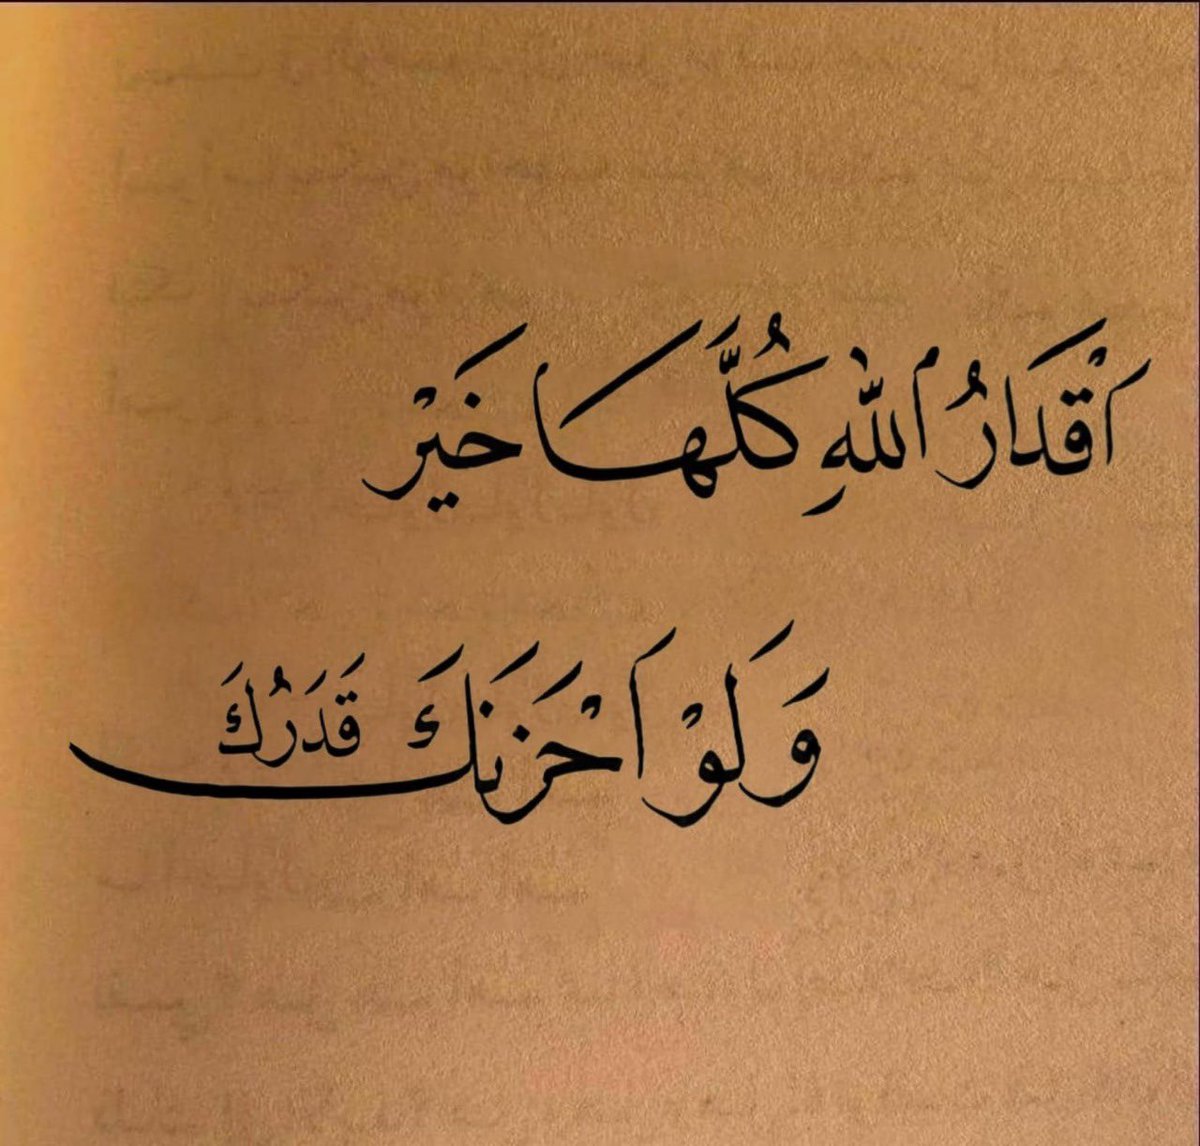 اَقْدَارُ اللّٰهِ كُلَّهَا خَيْر
وَلَوْ اَحْزَنَكَ قَدَرُكَ